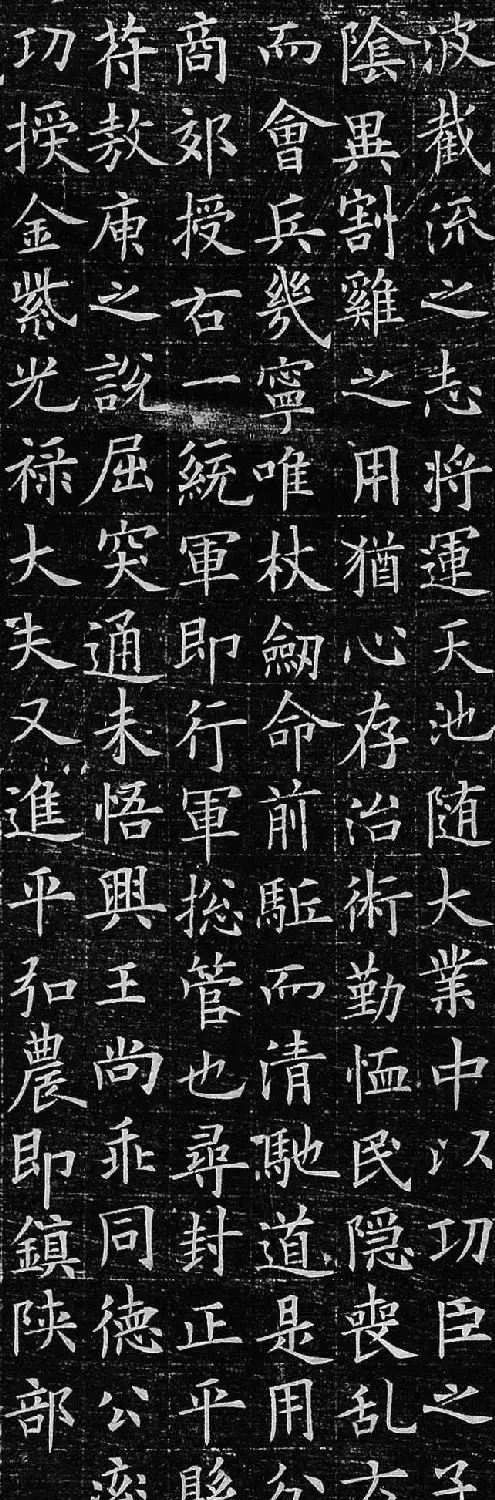 波截流之志将運天池随大業中以功臣之子
陰異割雞之用猶心存治術勤恤民隠喪乱
而會兵幾寧唯杖劒命前駈而清馳道是用
商郊授右一統軍即行軍揔管也尋封正平
苻敖庚之說屈突通未悟興王尚乖同德公
功授金紫光禄大夫又進平弘農即鎮陝部